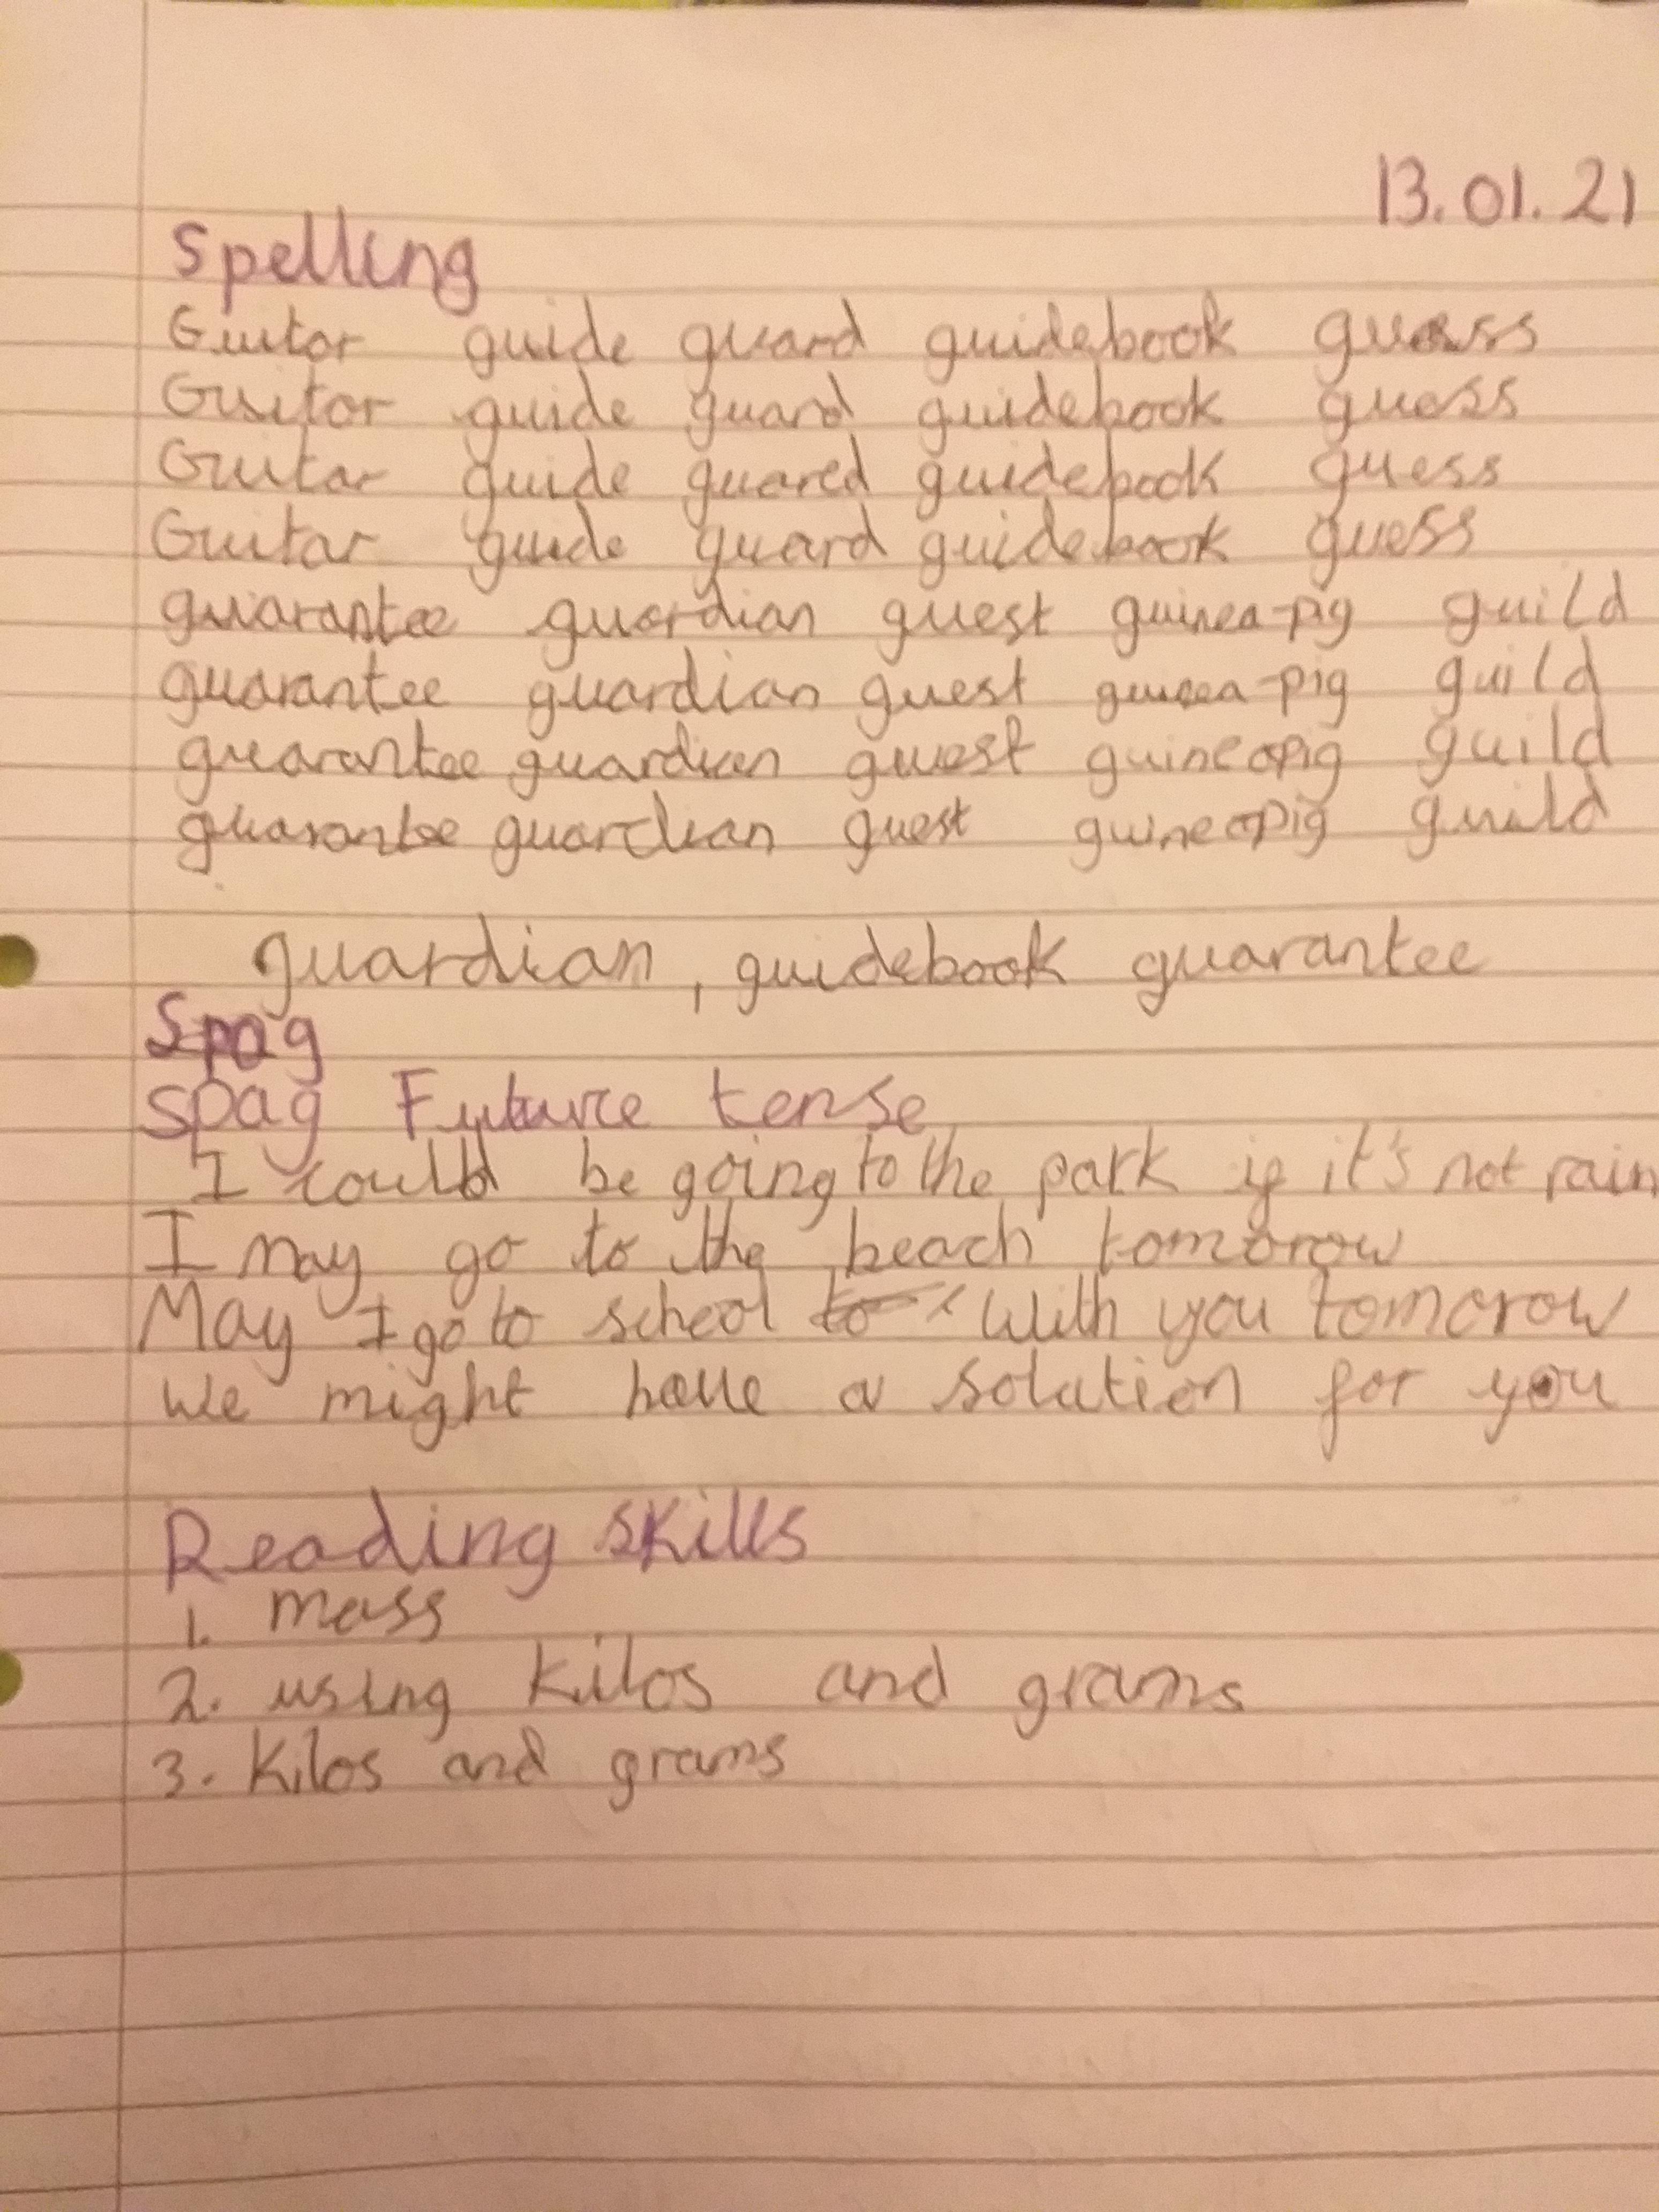 13.01.21
Spelling
Guitar guide guard guidebook guess
Guitar guide guard guidebook guess
Guitar guide guared guidebook guess
Guitar guide guard guidebook guess
guarantee guardian guest guinea-pig guild
guarantee guardian guest guinea-pig guild
guarantee guardian guest guineapig guild
guarantee guardian guest guineapig guild
guardian, guidebook guarantee
Spag
Spag Future tense
I could be going to the park if it's not rain
I may go to the beach tomorow
May I go to school to with you tomorow
We might have a solution for you
Reading skills
1. mass
2. using kilos and grams
3. Kilos and grams